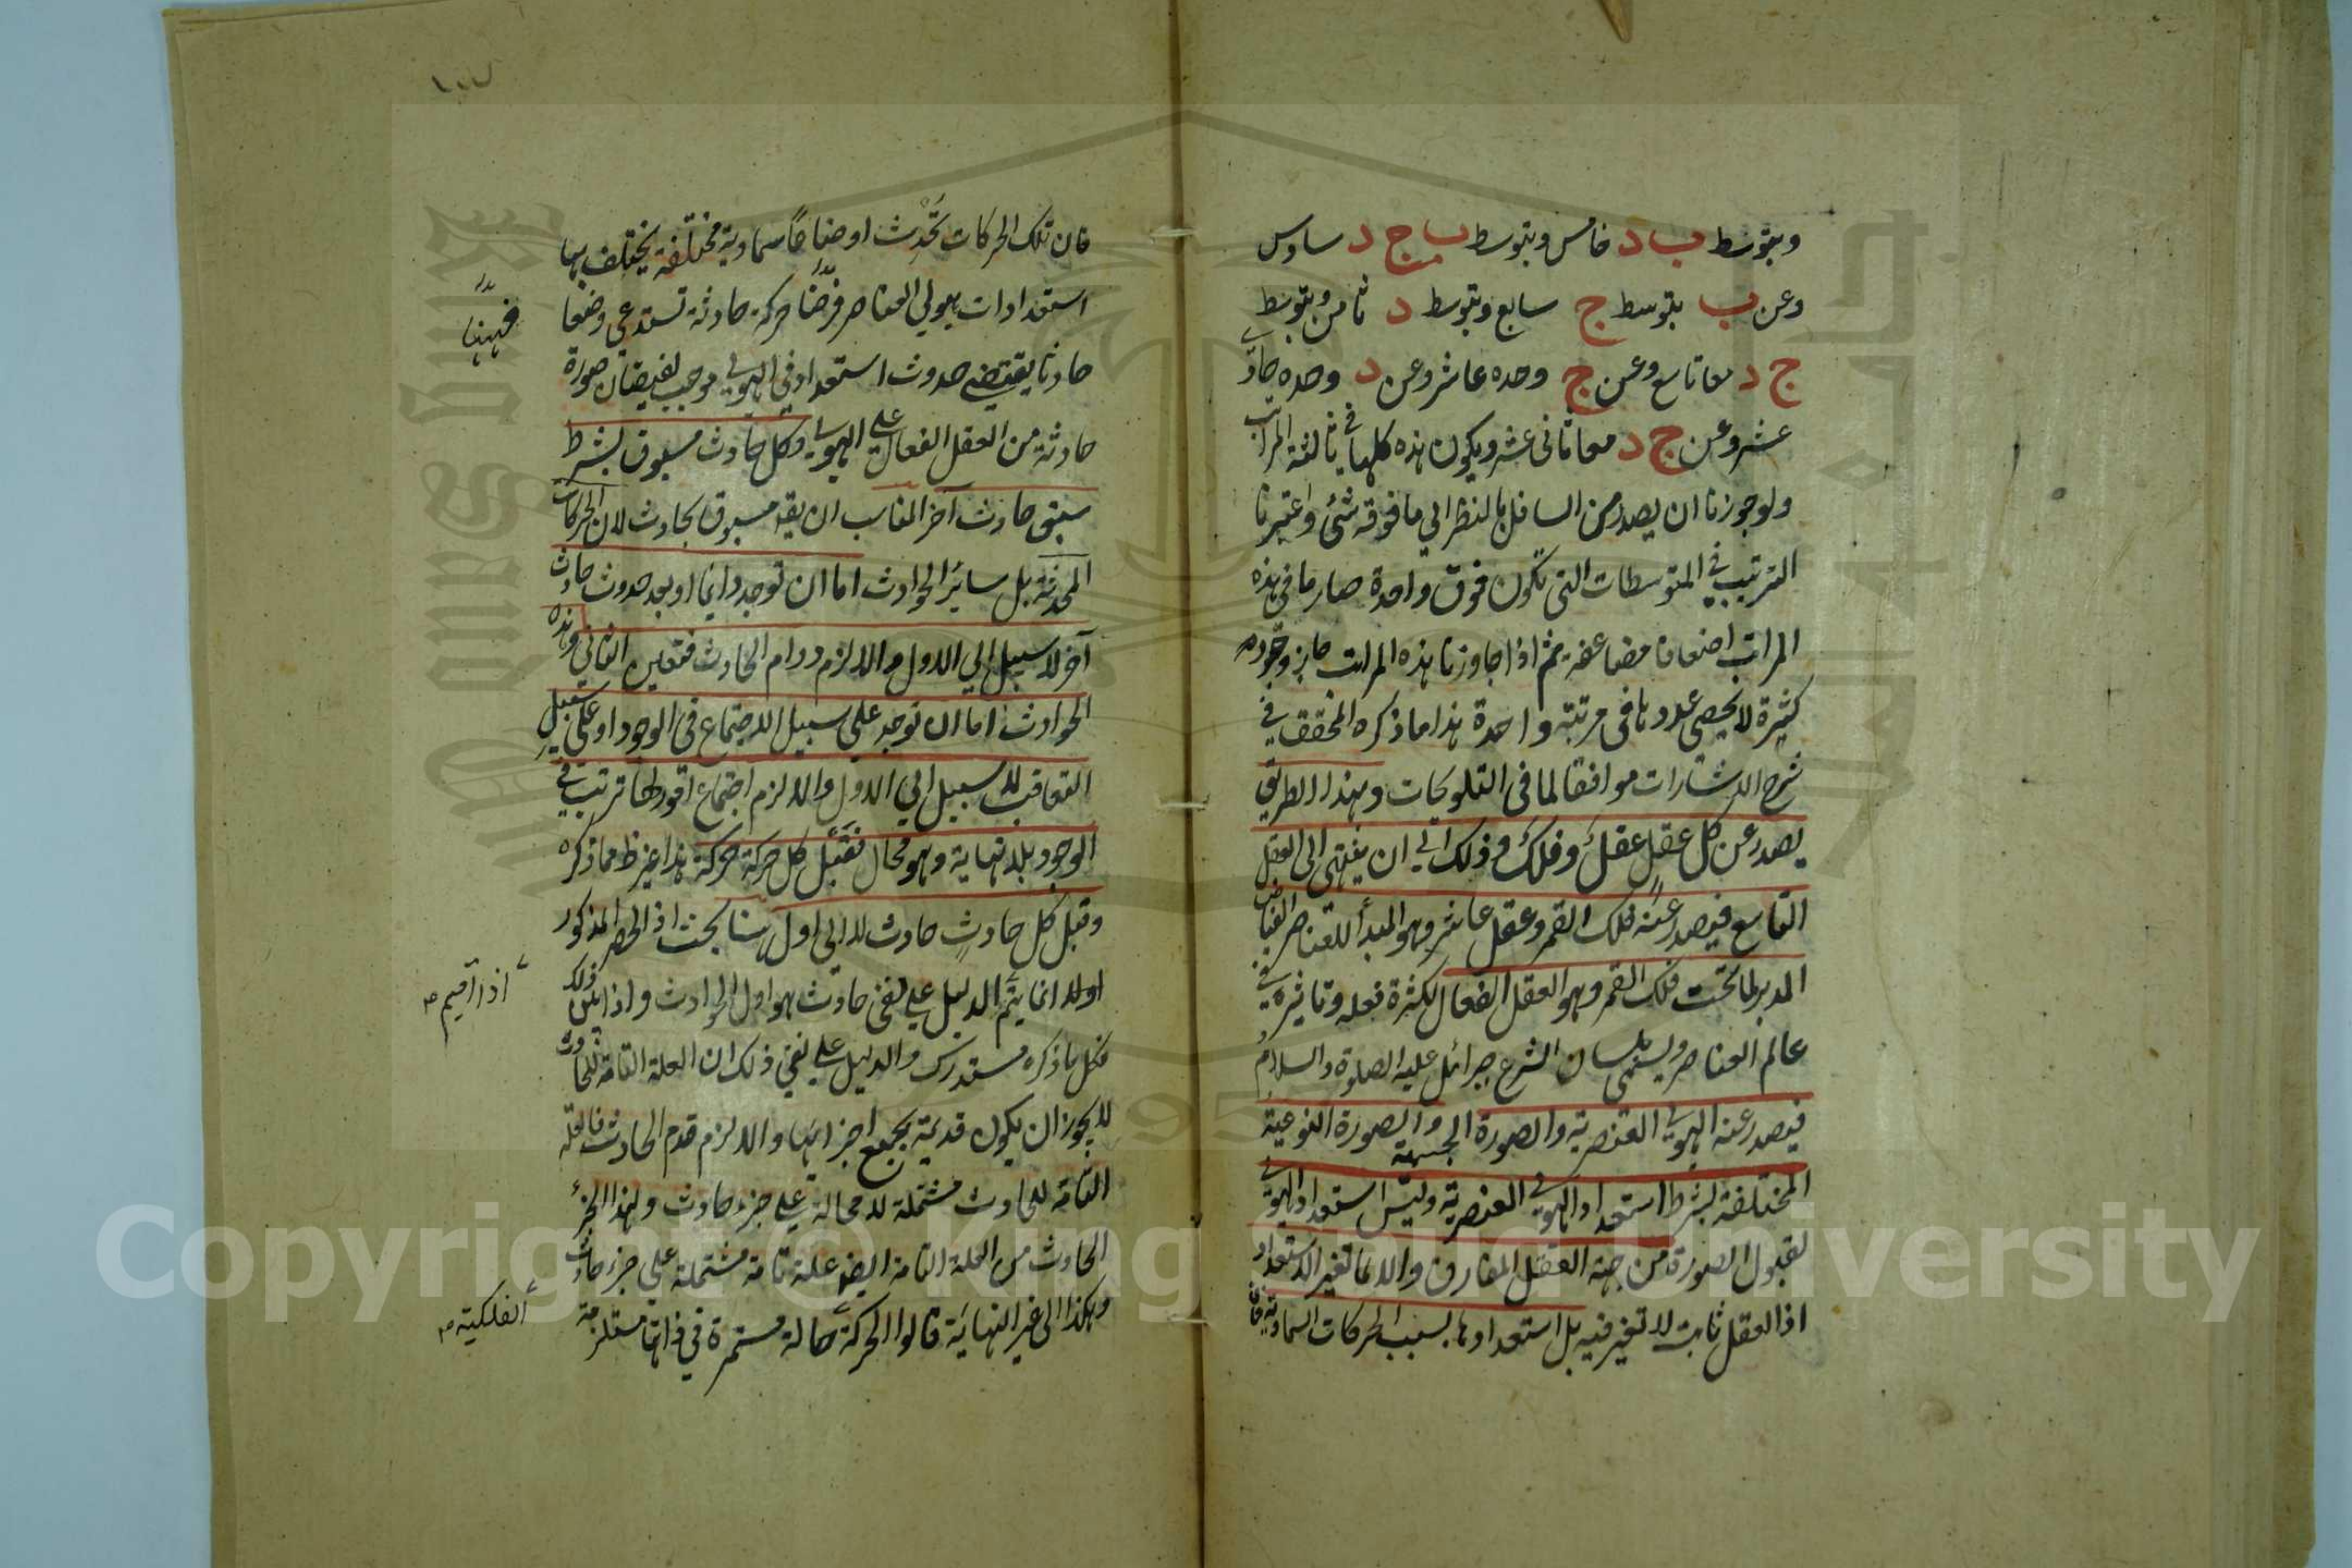 وبتوسط ب د خامس وبتوسط ب ج د سادس
وعن ب بتوسط ج سابع وبتوسط د ثامن وبتوسط
ج د معا تاسع وعن ج وحده عاشر وعن د وحده حادى
عشر وعن ج د معا ثانى عشر ويكون هذه كلها فى ثالثة المراتب
ولو جوزنا ان يصدر من السافل بالنظر الى ما فوقه شئ واعتبرنا
الترتيب فى المتوسطات التى تكون فوق واحدة صار ما فى هذه
المراتب اضعافا مضاعفة ثم اذا جاوزنا هذه المراتب جاز وجود
كثيرة لا يحصى عددها فى مرتبة واحدة هذا ما ذكره المحقق فى
شرح الاشارات موافقا لما فى التلويحات وبهذا الطريق
يصدر عن كل عقل عقل وفلك وذلك الى ان ينتهى الى العقل
التاسع فيصدر عنه فلك القمر وعقل عاشر وهو المبدأ للعناصر الفياض
المدبر لما تحت فلك القمر وهو العقل الفعال لكثرة فعله وتاثيره فى
عالم العناصر ويسمى بلسان الشرع جبرائل عليه الصلوة والسلام
فيصدر عنه الهيولى العنصرية والصورة الجسمية والصورة النوعية
المختلفة بشرط استعداد الهيولى العنصرية وليس استعداد الهيولى
لقبول الصورة من جهة العقل المفارق والا لما تغير الاستعداد
اذ العقل ثابت لا تغير فيه بل استعدادها بسبب الحركات السماوية فان
فان تلك الحركات تحدث اوضاعا سماوية مختلفة يختلف بها
استعدادات هيولى العناصر فرضنا حركة حادثة تستدعى وضعا
فههنا
حادثا يقتضى حدوث استعداد فى الهيولى موجب لفيضان صورة
حادثة من العقل الفعال على الهيولى وكل حادث مسبوق بشرط
سبق حادث آخر المناسب ان يقه مسبوق بحادث لان الحركات
المحدثة بل ساير الحوادث اما ان توجد دايما او بعد حدوث حادث
آخر لا سبيل الى الاول والا لزم دوام الحادث فتعين الثانى وهذه
الحوادث اما ان توجد على سبيل الاجتماع فى الوجود او على سبيل
التعاقب لا سبيل الى الاول والا لزم اجتماع امور لها ترتب فى
الوجود بلا نهاية وهو محال فقبل كل حركة حركة هذا غير ظ مما ذكره
وقبل كل حادث حادث لا الى اول هنا بحث اذ الحصر المذكور
اولا انما يتم الدليل على نفى حادث هو اول الحوادث واذا ذلك
اذا اقيم صح
فكل ما ذكره مستدرك والدليل على نفى ذلك ان العلة التامة للحادث
لا يجوز ان يكون قديمة بجميع اجزائها والا لزم قدم الحادث فالعلة
التامة للحادث مشتملة لا محالة على جزء حادث ولهذا الجزء
الحادث من العلة التامة ايضا علة تامة مشتملة على جزء حادث
وهكذا الى غير النهاية قالوا الحركة حالة مستمرة فى ذاتها مستلزمة
الفلكية صح
Copyright © King Saud University